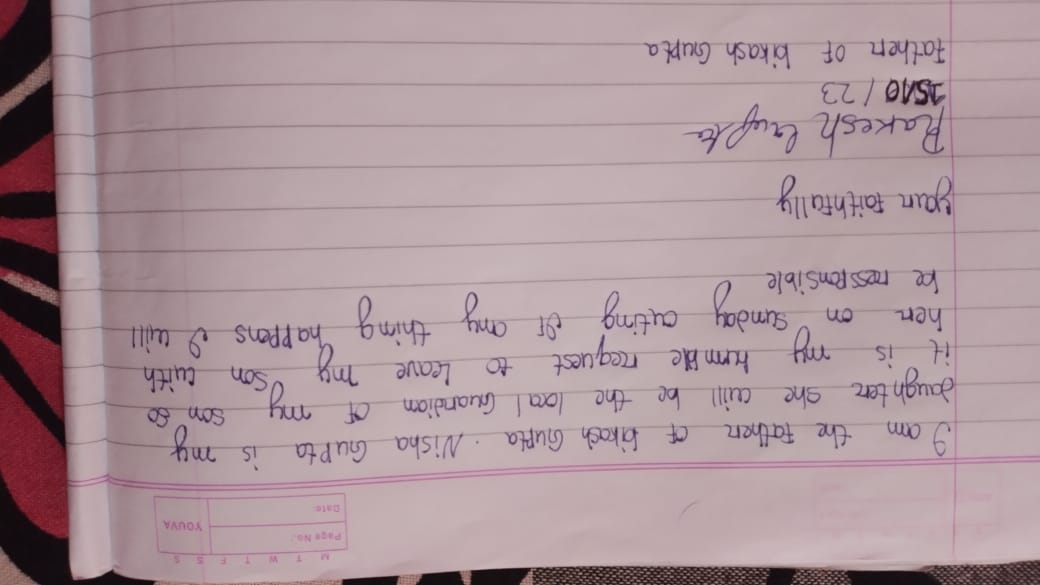 M T W T F S S
Page No.:
Date:
YOUVA
I am the father of bikash Gupta. Nisha Gupta is my
daughter she will be the local Guardian of my son so
it is my humble request to Leave my son with
her on sunday outing If any thing happens I will
be ressponsible
your faithfully
Rakesh Gupta
15/10/23
father of bikash Gupta